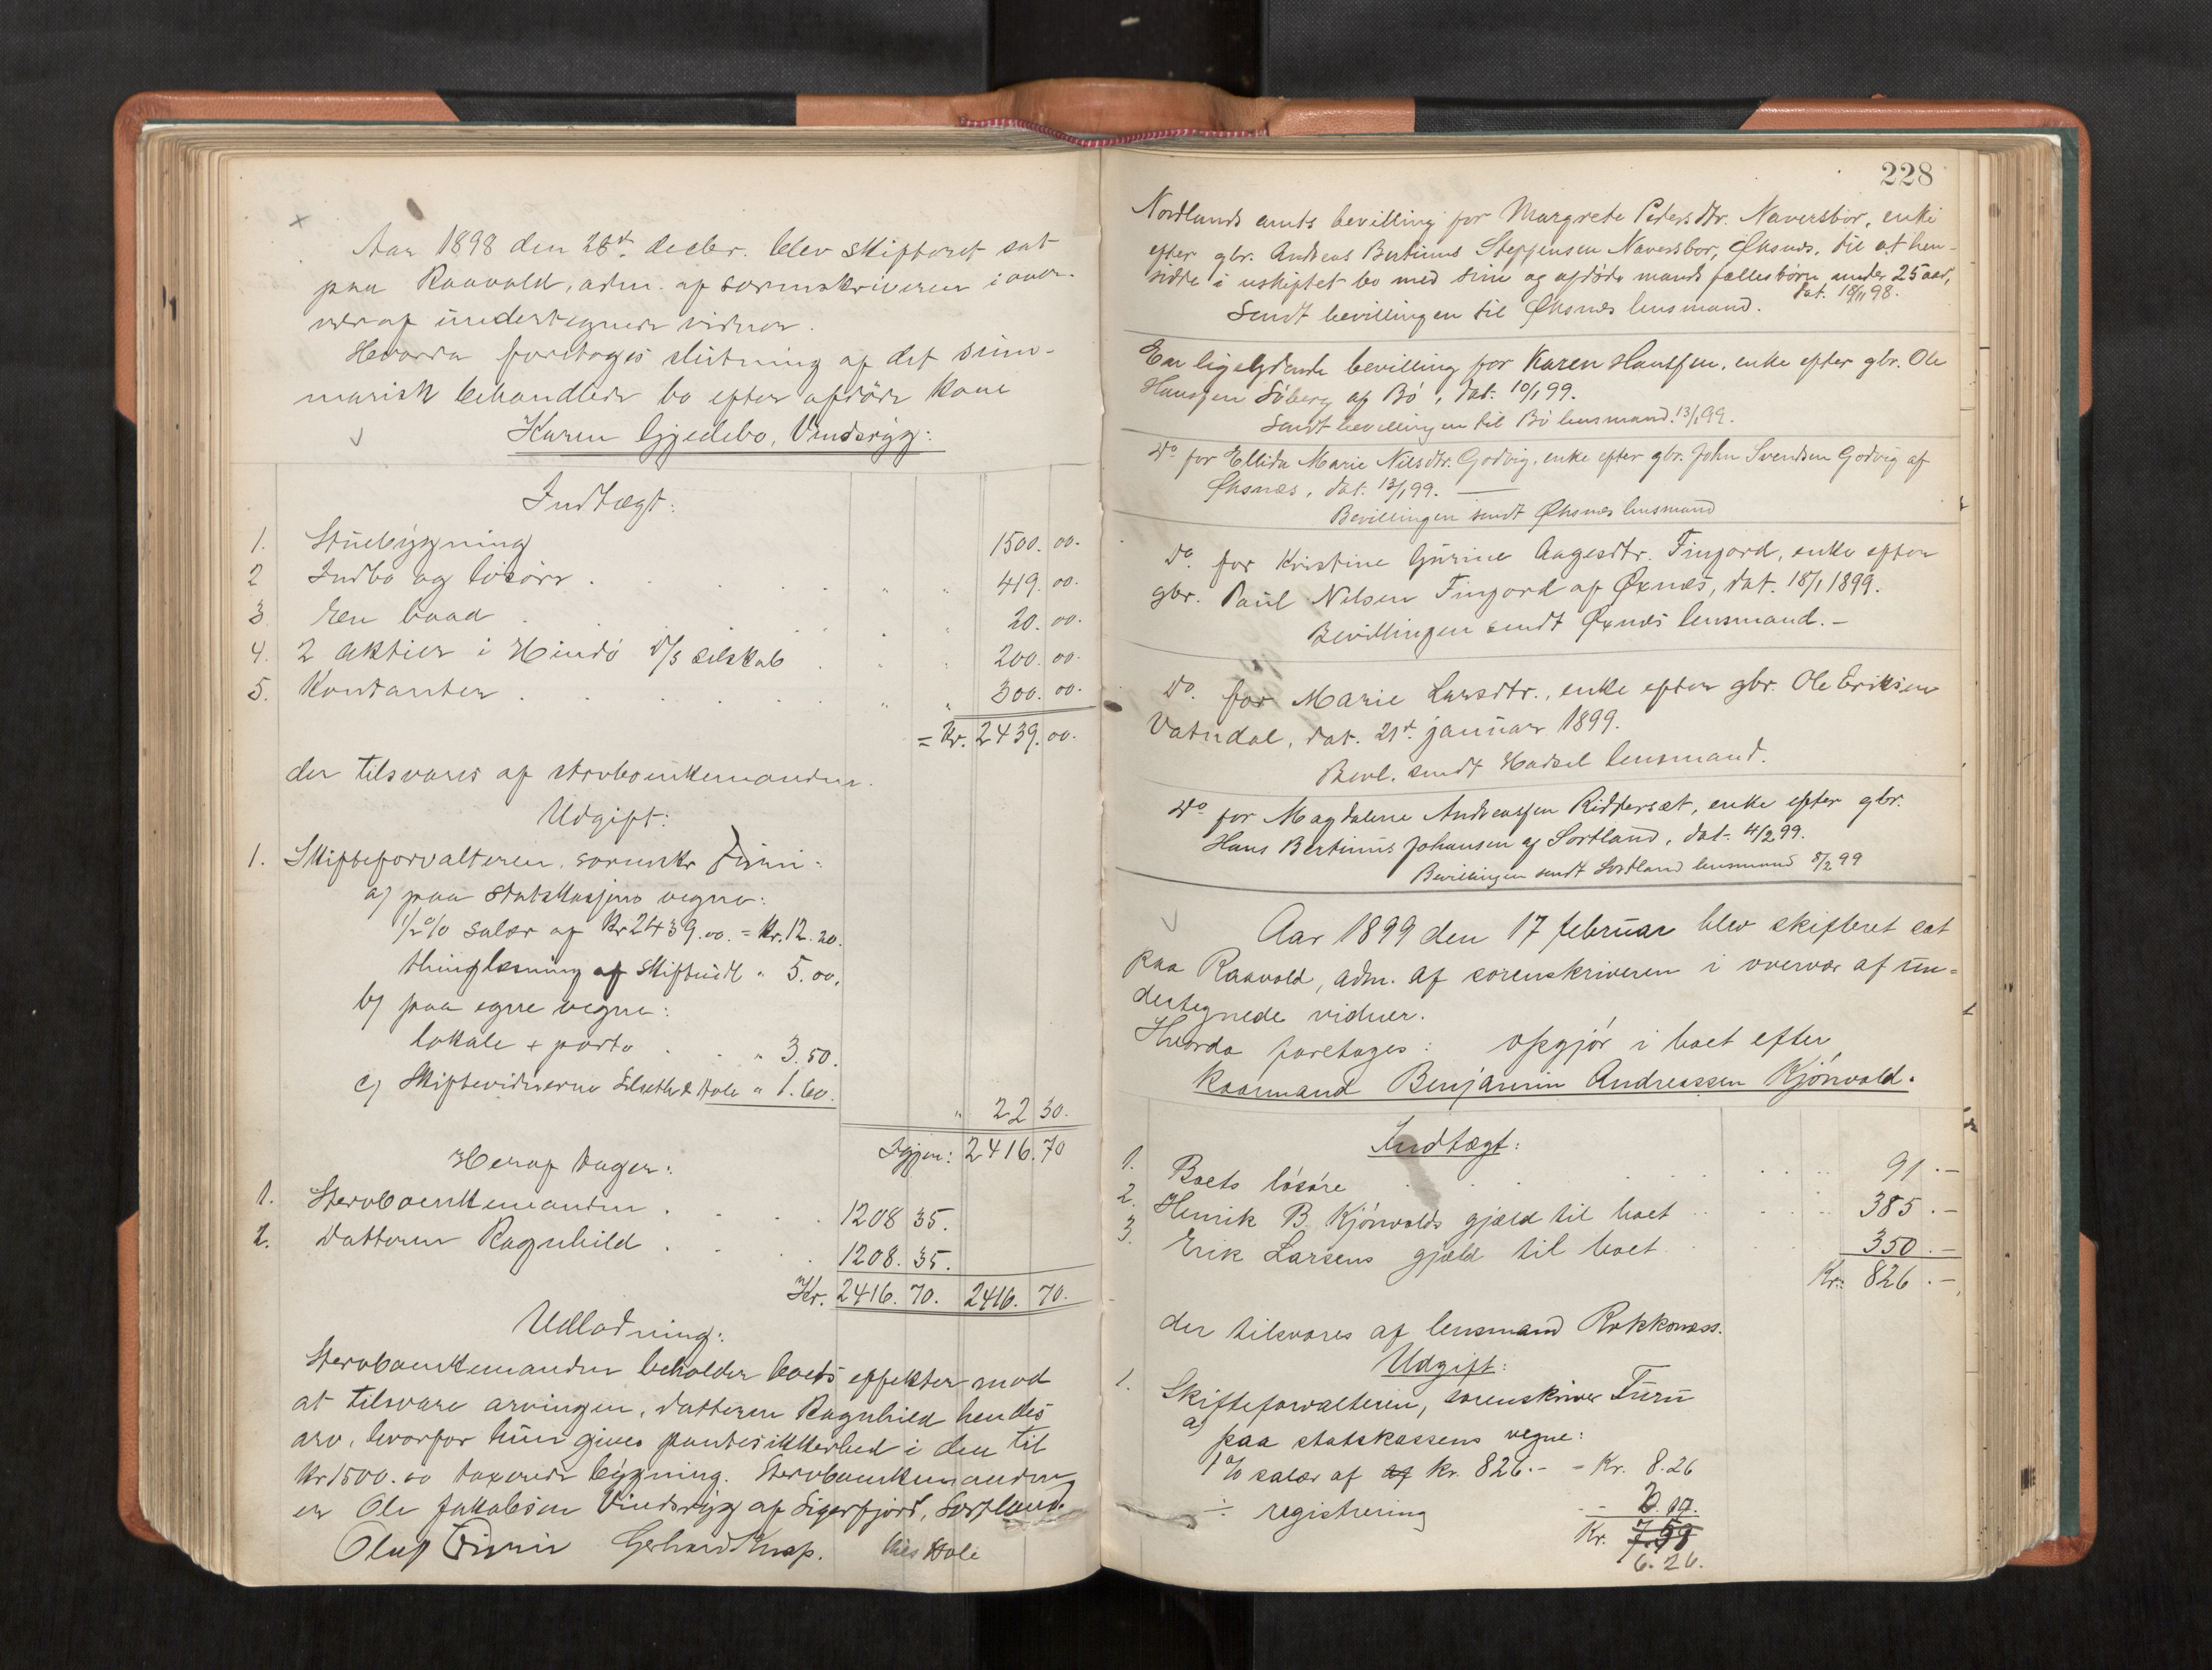 Aar 1898 den 28d. decbr. blev skifteret sat
paa Raavold, adm. af sorenskriveren i over-
vær af undertegnede vidner.
Hvorda foretoges slutning af det sum-
marisk behandlede bo efter afdöde kone
Karen Gjedebo, Vindsryg:
Indtægt:
1. Stuebygning 1500. 00.
2 Indbo og lösöre . . . . " " 419. 00.
3 En baad . . . . . " 20. 00.
4. 2 aktier i Hindö D/S selskab . " " 200. 00.
5. Kontanter . . . . . " " 300. 00.
= Kr. 2439. 00.
der tilsvares af stervboenkemanden.
Udgift:
1. Skifteforvalteren, sorenskr Furu:
a) paa statskassens vegne:
1/2 % salær af Kr 2439.00. = Kr. 12.20.
thinglæsning af skifteudl " 5.00.
b) paa egne vegne:
lokale + porto . . " 3.50.
c) Skiftevidnerne Silseth & Hole " 1.60.
" 22 30.
Igjen: 2416. 70
Heraf tager:
1. Stervboenkemanden . . . . 1208 35.
2. Datteren Ragnhild . . . . 1208. 35.
Kr. 2416. 70. 2416. 70.
Udlodning:
Stervboenkemanden beholder boets effekter mod
at tilsvare arvingen, datteren Ragnhild hendes
arv, hvorfor hun gives pantesikkerhed i den til
Kr 1500.00 taxerede bygning. Stervboenkemanden
er Ole Jakobsen Vindsryg af Sigerfjord, Sortland.
Olaf Furu Gerhard Knap. Nils Hole
228
Nordlands amts bevilling for Margrete Pedersdtr. Naversbor, enke
efter gbr. Andreas Bertinus Steffensen Naversbor, Øksnes, til at hen-
sidde i uskiftet bo med sine og afdöde mands fællesbörn under 25 aar,
dat. 18/11 98.
Sendt bevillingen til Øksnes lensmand.
En ligelydende bevilling for Karen Hanssen, enke efter gbr. Ole
Hanssen Söberg af Bö, dat. 10/1 99.
Sendt bevillingen til Bö lensmand. 13/1 99.
Do for Ellida Marie Nilsdtr. Godvig, enke efter gbr. John Svendsen Godvig af
Øksnes, dat. 13/1 99. —
Bevillingen sendt Øksnes lensmand
Do. for Kristine Gurine Aagesdtr. Tingord, enke efter
gbr. Paul Nelsen Tingord af Øxnes, dat. 18/1 1899.
Bevillingen sendt Øxnes lensmand. –
Do. for Marie Larsdtr., enke efter gbr. Ole Eriksen
Vatndal, dat. 21d. januar 1899.
Bevl. sendt Hadsel lensmand.
Do for Magdalene Andreassen Riddersæt, enke efter gbr.
Hans Bertinus Johansen af Sortland, dat. 4/2 99.
Bevillingen sendt Sortland lensmand 8/2 99
Aar 1899 den 17 februar blev skifteret sat
paa Raavold, adm. af sorenskriveren i overvær af un-
dertegnede vidner.
Hvorda foretoges: opgjör i boet efter
kaarmand Benjamin Andreassen Kjönvold.
Indtægt:
1. Boets lösöre . . . . . . 91.–
2. Henrik B. Kjönvolds gjæld til boet . . . 385.–
3. Erik Larsens gjæld til boet . . . 350.–
Kr. 826.–
der tilsvares af lensmand Rokkonæss.
Udgift:
1. Skifteforvalteren, sorenskriver Furu
a) paa statskassens vegne:
1 % salær af af kr. 826.– – Kr. 8.26
÷ registrering – 2.00.
Kr. 7.59
6.26.